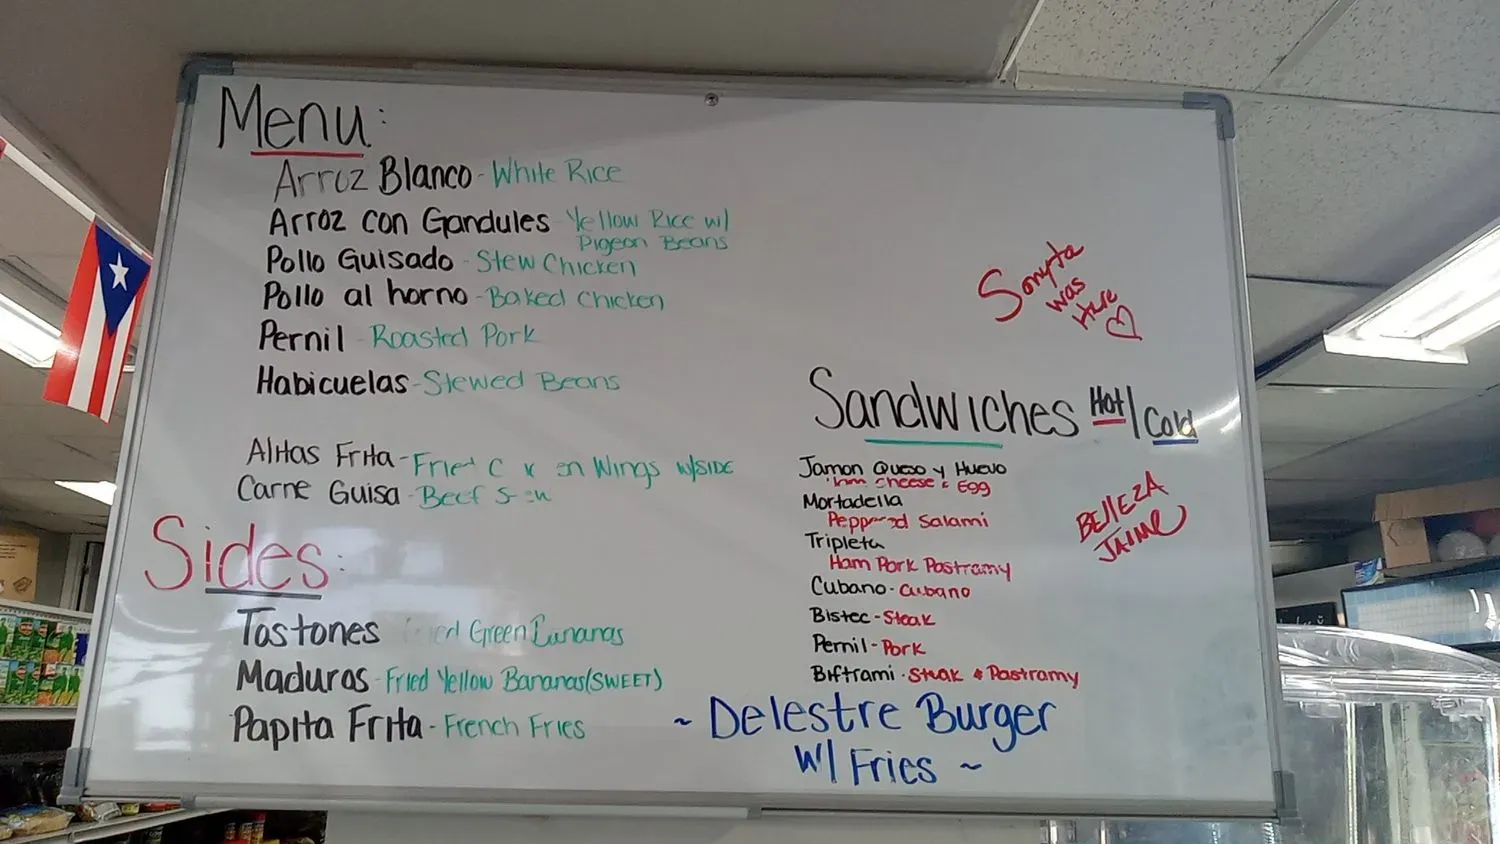 Menu:
Arroz Blanco - White Rice
Arroz con Gandules - Yellow Rice w/
Pigeon Beans
Pollo Guisado - Stew Chicken
Pollo al horno - Baked Chicken
Pernil - Roasted Pork
Habicuelas - Stewed Beans
Alitas Frita - Fried Wings w/SIDE
Carne Guisa - Beef
Sides:
Tostones Green Bananas
Maduros - Fried Yellow Bananas (SWEET)
Papita Frita - French Fries
Sonyta
was
Here
Sandwiches Hot/Cold
Jamon Queso y Huevo
Cheese & Egg
Mortadella
Salami
Tripleta
Ham Pork Pastramy
Cubano - Cubano
Bistec - Steak
Pernil - Pork
Biftrami - Steak & Pastramy
BEllEZA
JAIME
~ Delestre Burger
w/ Fries ~